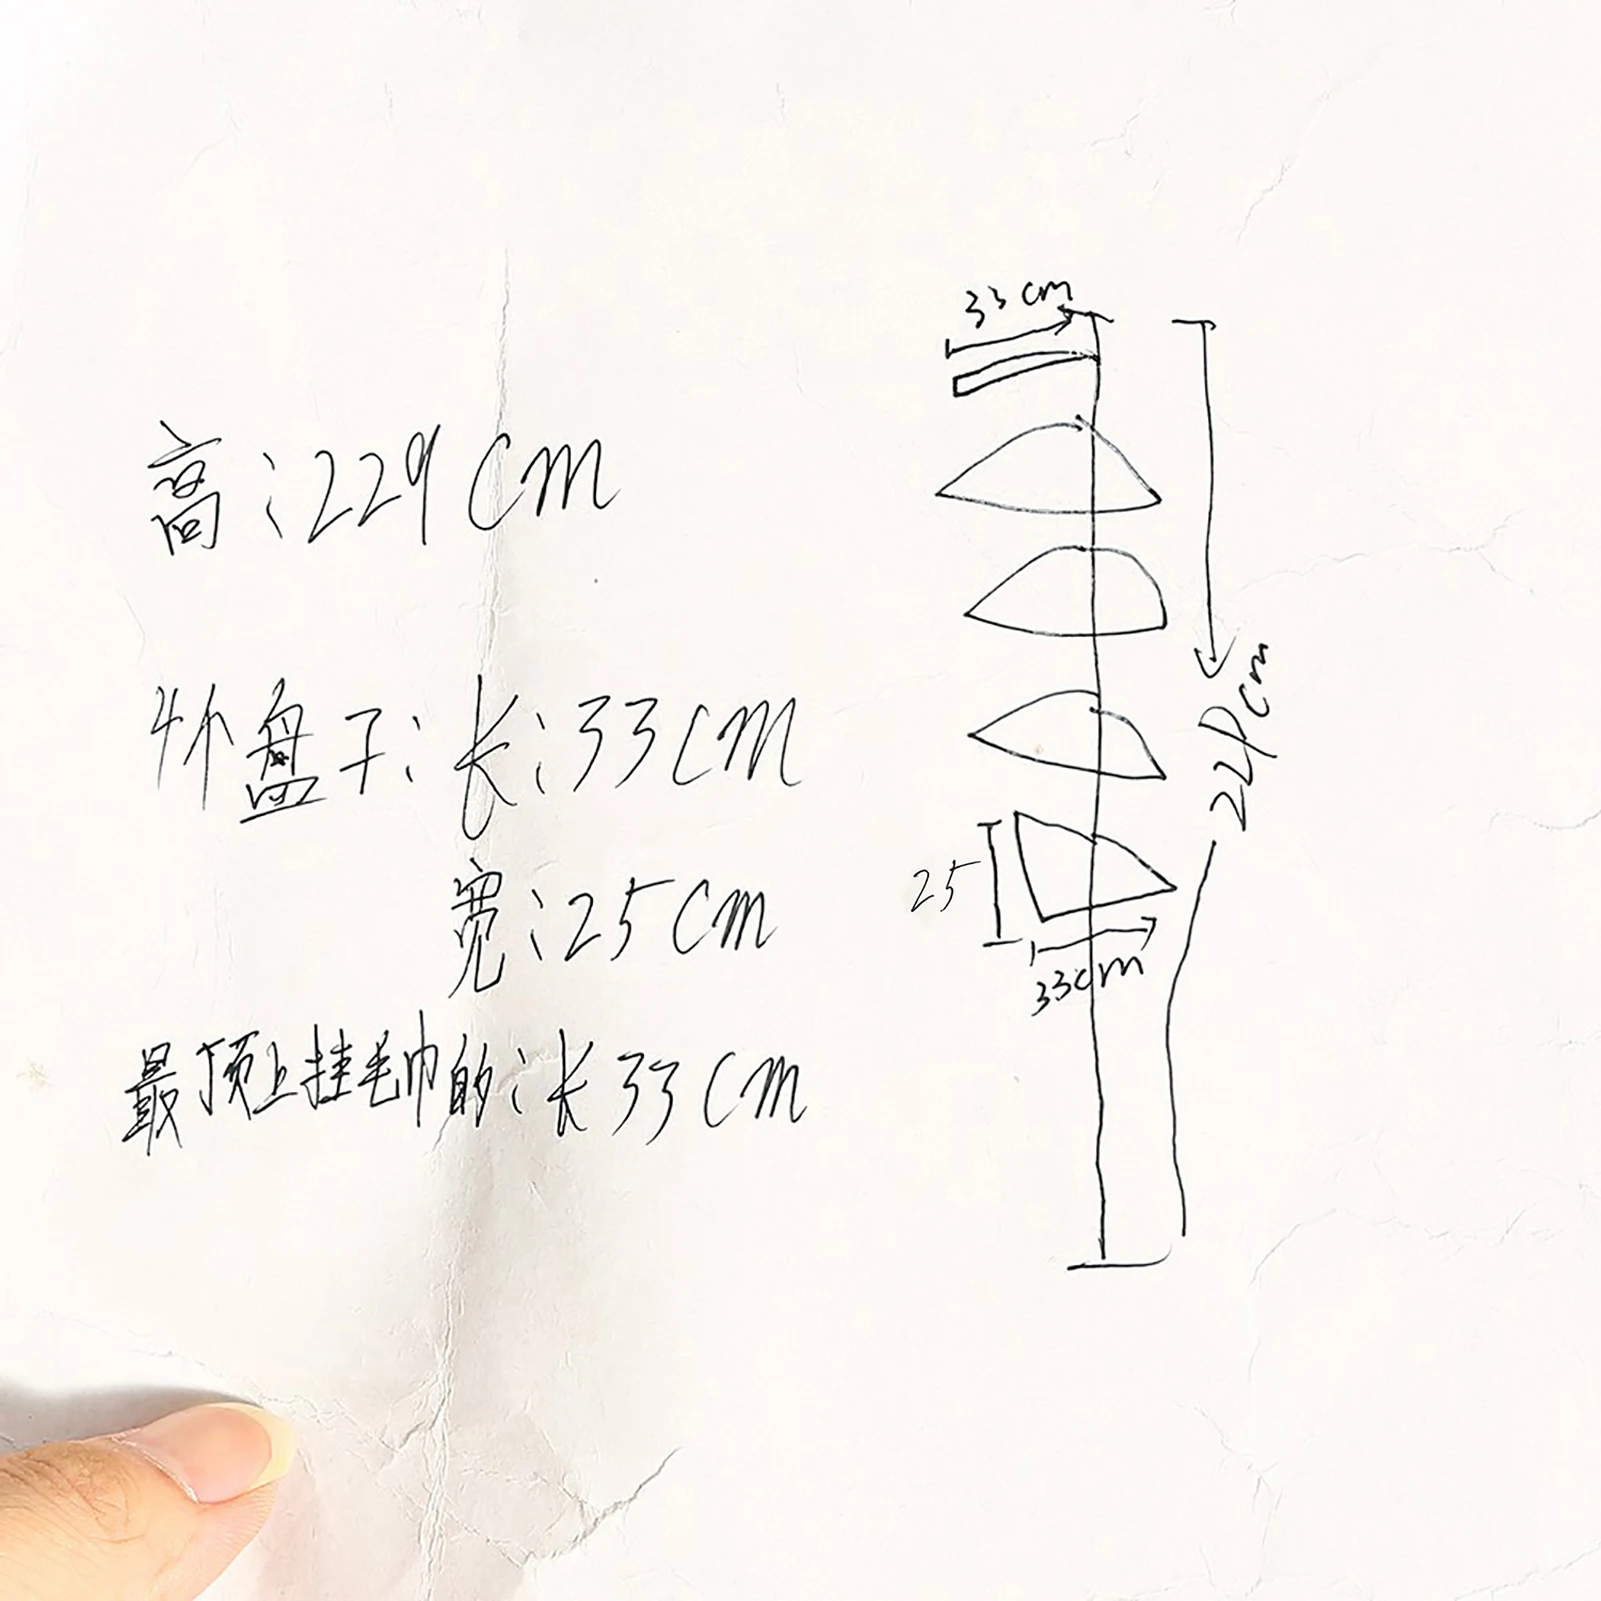 高:229cm
4个盘子:长:33cm
宽:25cm
最顶上挂毛巾的:长33cm
33cm
229cm
25
33cm